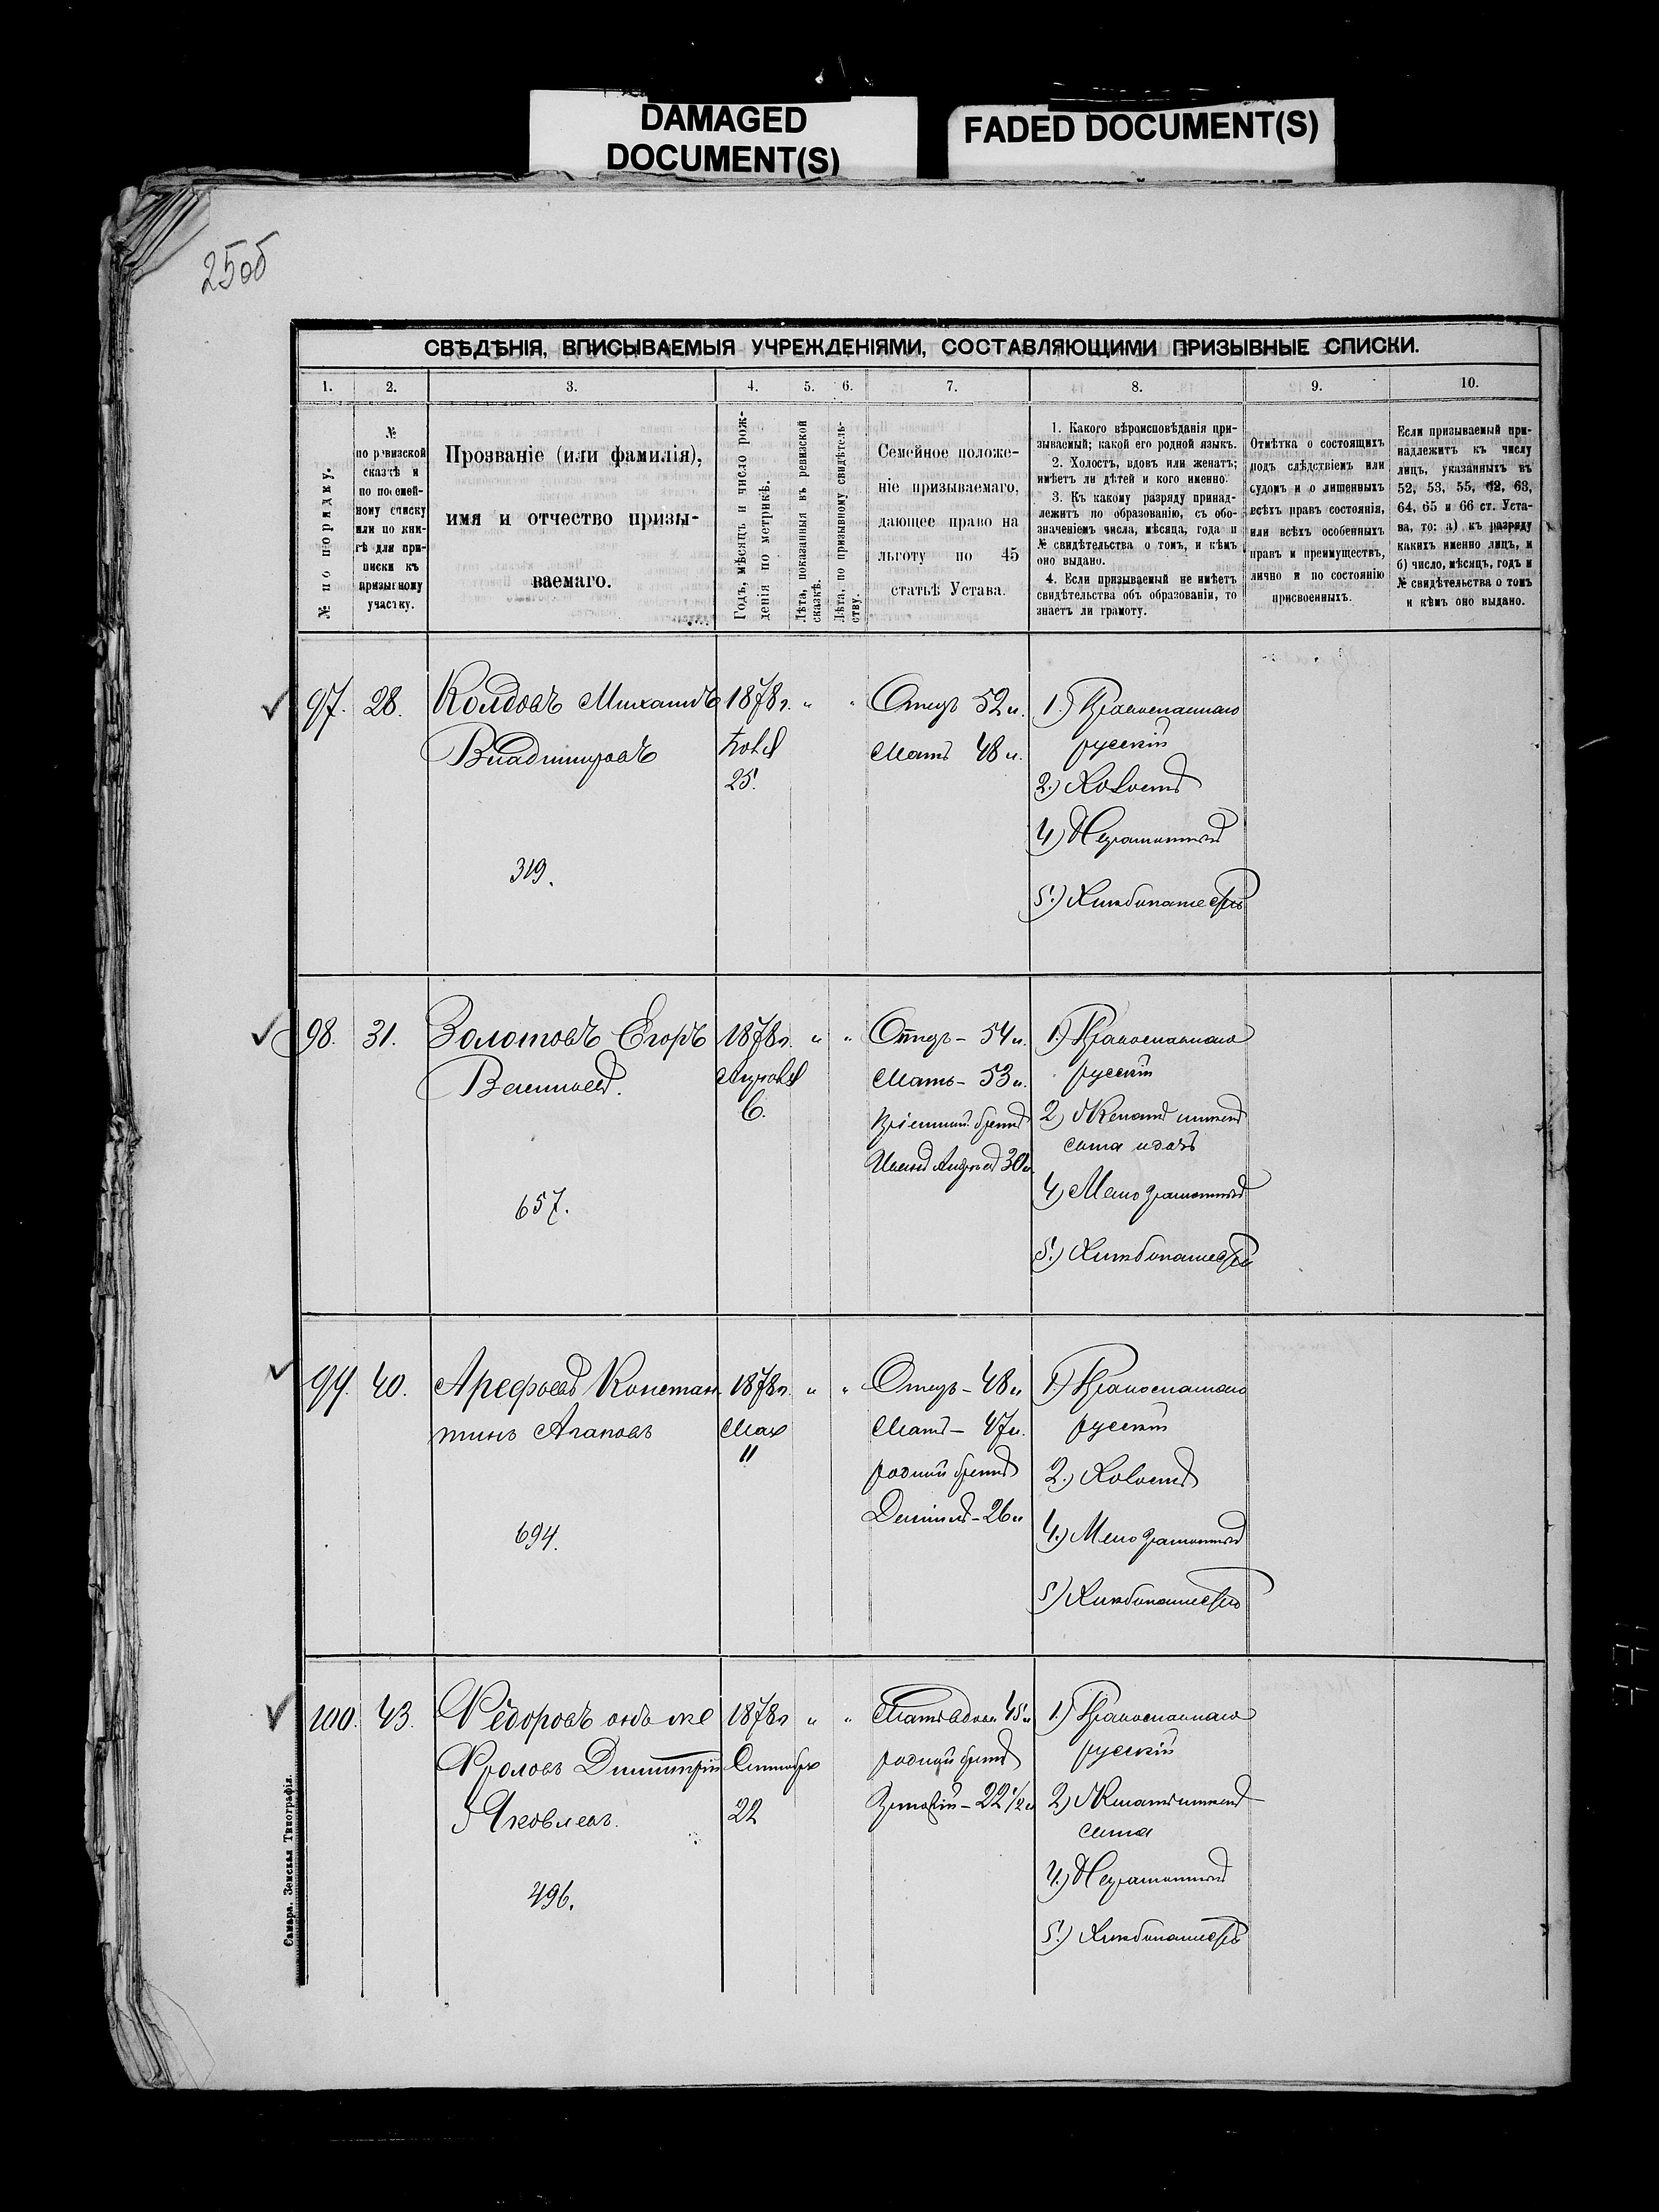 DAMAGED
DOCUMENT(S)
FADED DOCUMENT(S)
25об
СВѢДѢНІЯ, ВПИСЫВАЕМЫЯ УЧРЕЖДЕНІЯМИ, СОСТАВЛЯЮЩИМИ ПРИЗЫВНЫЕ СПИСКИ.
1. 2. 3. 4. 5. 6. 7. 8. 9. 10.
№ по порядку.
№
по ревизской
сказкѣ и
по посемей-
ному списку
или по кни-
гѣ для при-
писки къ
призывному
участку.
Прозваніе (или фамилія),
имя и отчество призы-
ваемаго.
Годъ, мѣсяцъ и число рож-
денія по метрикѣ.
Лѣта, показанныя въ ревизской
сказкѣ.
Лѣта, по призывному свидѣтель-
ству.
Семейное положе-
ніе призываемаго,
дающее право на
льготу по 45
статьѣ Устава.
1. Какого вѣроисповѣданія при-
зываемый; какой его родной языкъ.
2. Холостъ, вдовъ или женатъ;
имѣетъ ли дѣтей и кого именно.
3. Къ какому разряду принад-
лежитъ по образованію, съ обо-
значеніемъ числа, мѣсяца, года и
№ свидѣтельства о томъ, и кѣмъ
оно выдано.
4. Если призываемый не имѣетъ
свидѣтельства объ образованіи, то
знаетъ ли грамоту.
Отмѣтка о состоящихъ
подъ слѣдствіемъ или
судомъ и о лишенныхъ
всѣхъ правъ состоянія,
или всѣхъ особенныхъ
правъ и преимуществъ,
лично и по состоянію
присвоенныхъ.
Если призываемый при-
надлежитъ къ числу
лицъ, указанныхъ въ
52, 53, 55, 62, 63,
64, 65 и 66 ст. Уста-
ва, то: а) къ разряду
какихъ именно лицъ, и
б) число, мѣсяцъ, годъ и
№ свидѣтельства о томъ
и кѣмъ оно выдано.
97. 28. Колдовъ Михаилъ 1878г. " " Отецъ 52 л. 1.) Православнаго
Владимировъ Мать 48 л. русскій
25. 2.) Холостъ
4) Неграмотный
319.
5.) Хлѣбопашествъ
98. 31. Золотовъ Егоръ 1878г. " " Отецъ - 54 л. 1.) Православнаго
Васильевъ. Мать - 53 л. русскій
6. Пріемный братъ 2) Женатъ имѣетъ
Иванъ 30 л. сына
4) Мало грамотный
657.
5.) Хлѣбопашеств
99. 40. Арефьевъ Констан- 1878г. " " Отецъ - 48 л 1) Православнаго
тинъ Агаповъ Мая Мать - 47 л. русскій
11 родной братъ 2.) Холостъ
26 л
694. 4.) Мало грамотный
5) Хлѣбопашество
100. 43. Ѳедоровъ онъ же 1878г " " Мать вдова 45 л 1.) Православнаго
Фроловъ Димитрій Сентября родной братъ русскій
Яковлевъ. 22 Зиновій - 22 1/2 л 2) Женатъ имѣетъ
сына
4.) Неграмотный
496.
5.) Хлѣбопашествъ
Самара. Земская Типографія.